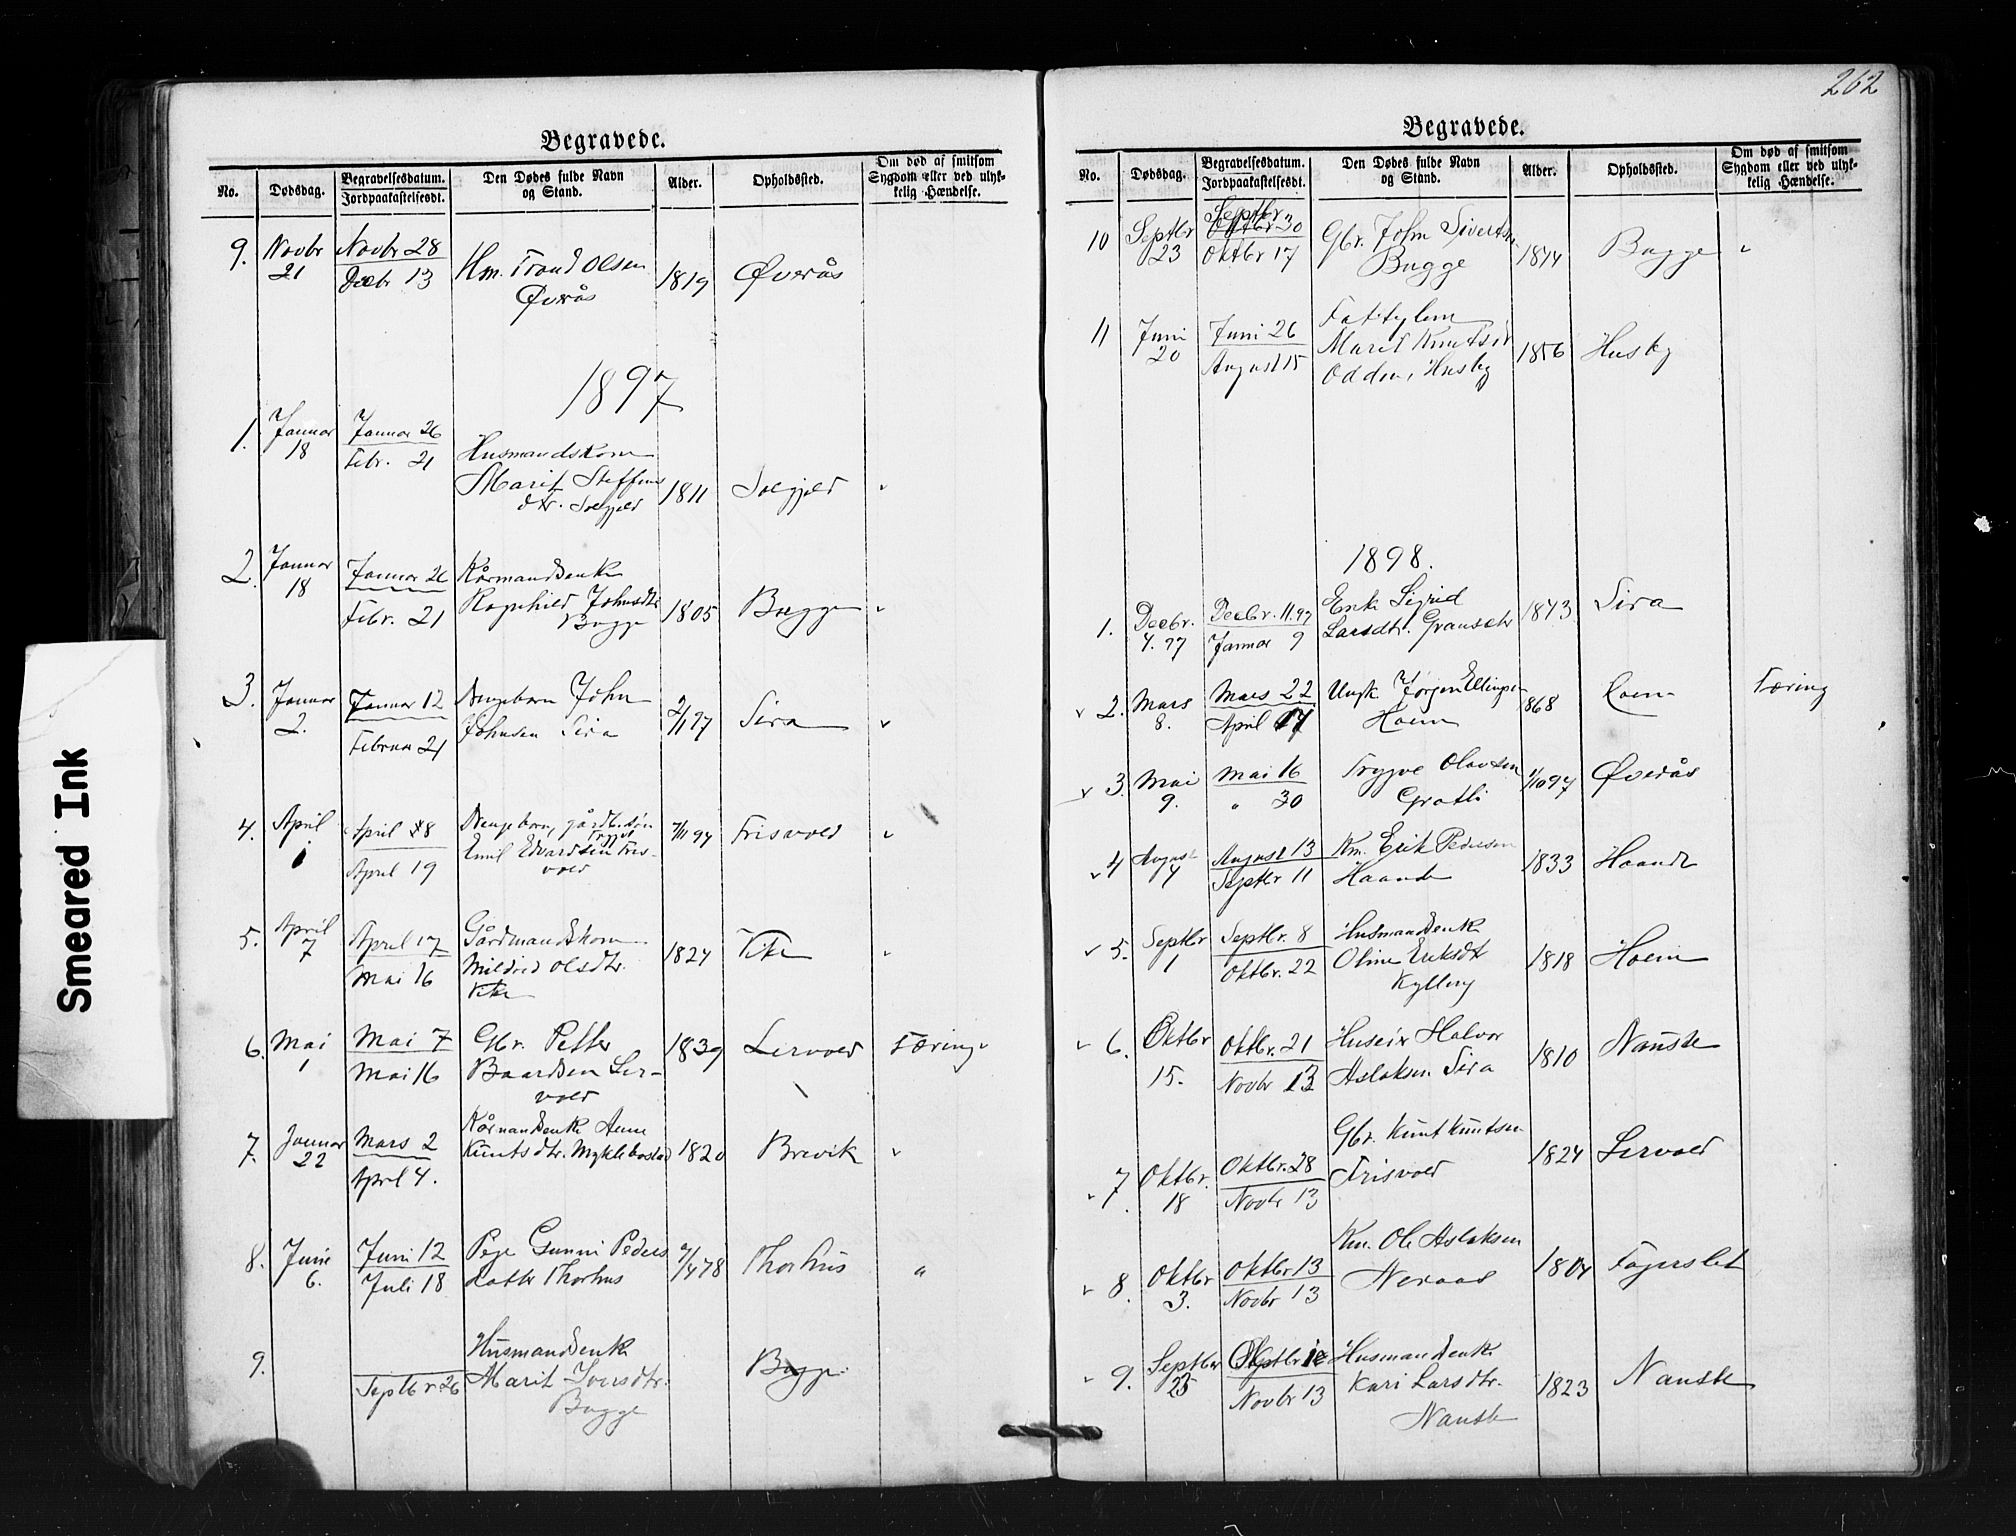 262
Begravede.
No.
Dødsdag.
Begravelsesdatum.
Jordpaakastelsesdt.
Den Dødes fulde Navn
og Stand.
Alder.
Opholdssted.
Om død af smitsom
Sygdom eller ved ulyk-
kelig Hændelse.
9. Novbr 21
Novbr 28
Decbr 13
Hm. Trond Olsen
Øverås
1819
Øverås
1897
1. Januar 18
Januar 26
Febr. 21
Husmandskone
Marit Steffens
dtr. Solgjeld
1811
Solgjeld
2. Januar 18
Januar 26
Febr. 21
Kårmandsenke
Ragnhild Johnsdtr
Bugge
1805
Bugge
3. Januar 2.
Januar 12
Februar 21
John
Johnsen Sira
Sira
4. April
April 8
April 19
Emil Edvardsen Fris-
vold
Frisvold
5. April 7
April 17
Mai 16
Gårdmandskone
Mildrid Olsdtr.
1824
6. Mai 1
Mai 7
Mai 16
Gbr. Petter
Baardsen Ler-
vold
1839
Lervold
Tæring
7. Januar 22
Mars 2
April 4.
Kårmandsenke Anne
Knutsdtr. Myklebostad
1820
Brevik
8. Juni 6.
Juni 12
Juli 18
Pige Gunni Peders
datter Thorhus
Thorhus
9.
Septbr 26
Husmandsenke
Marit Iversdtr.
Bugge
Bugge
Begravede.
No.
Dødsdag.
Begravelsesdatum.
Jordpaakastelsesdt.
Den Dødes fulde Navn
og Stand.
Alder.
Opholdssted.
Om død af smitsom
Sygdom eller ved ulyk-
kelig Hændelse.
10 Septbr 23
Septbr 30
Oktbr 17
Gbr. John Sivertsen
Bugge
Bugge
11 Juni 20
Juni 26
August 15
Marit Knutsdr
Odden, Husby
1856
Husby
1898.
1. Decbr. 4. 97
Decbr. 11. 97
Januar 9
Enke Sigrid
Larsdtr.
Sira
2. Mars 8.
Mars 22
April 17
Ungk Jørgen Ellingsen
Hoem
1868
Hoem
Tæring
3. Mai 9.
Mai 16
" 30
Trygve Olavsen
Grøtli
Øverås
4 August 4
August 13
Septbr 11
Km. Erik Pedersen
Haande
1833
Haande
5. Septbr 1
Septbr. 8
Oktbr. 22
Husmandsenke
Oline Eriksdt
Kylling
1818
Hoem
6. Oktbr 15.
Oktbr. 21
Novbr 13
Halvor
Aslaksen Sira
1810
Nauste
7. Oktbr. 18
Oktbr. 28
Novbr 13
Gbr. Knut Knutsen
Frisvold
1824
Lervold
8. Oktbr 3.
Oktbr 13
Novbr 13
Km. Ole Aslaksen
Neraas
Fagerslet
9. Septbr 25
Novbr 13
Husmandsenke
Kari Larsdtr.
Nauste
1823
Nauste
Smeared Ink